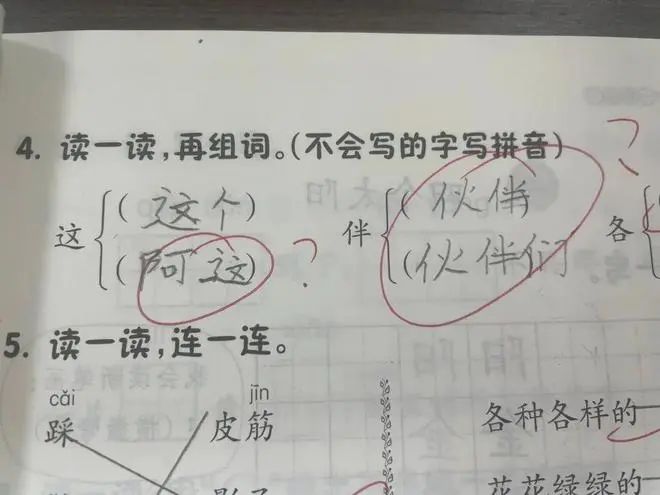 4. 读一读,再组词。(不会写的字写拼音)
?
这 (这个)
(阿这) ?
伴 (伙伴)
(伙伴们
各
5. 读一读,连一连。
cǎi jīn
踩 皮筋 各种各样的
影子 花花绿绿的